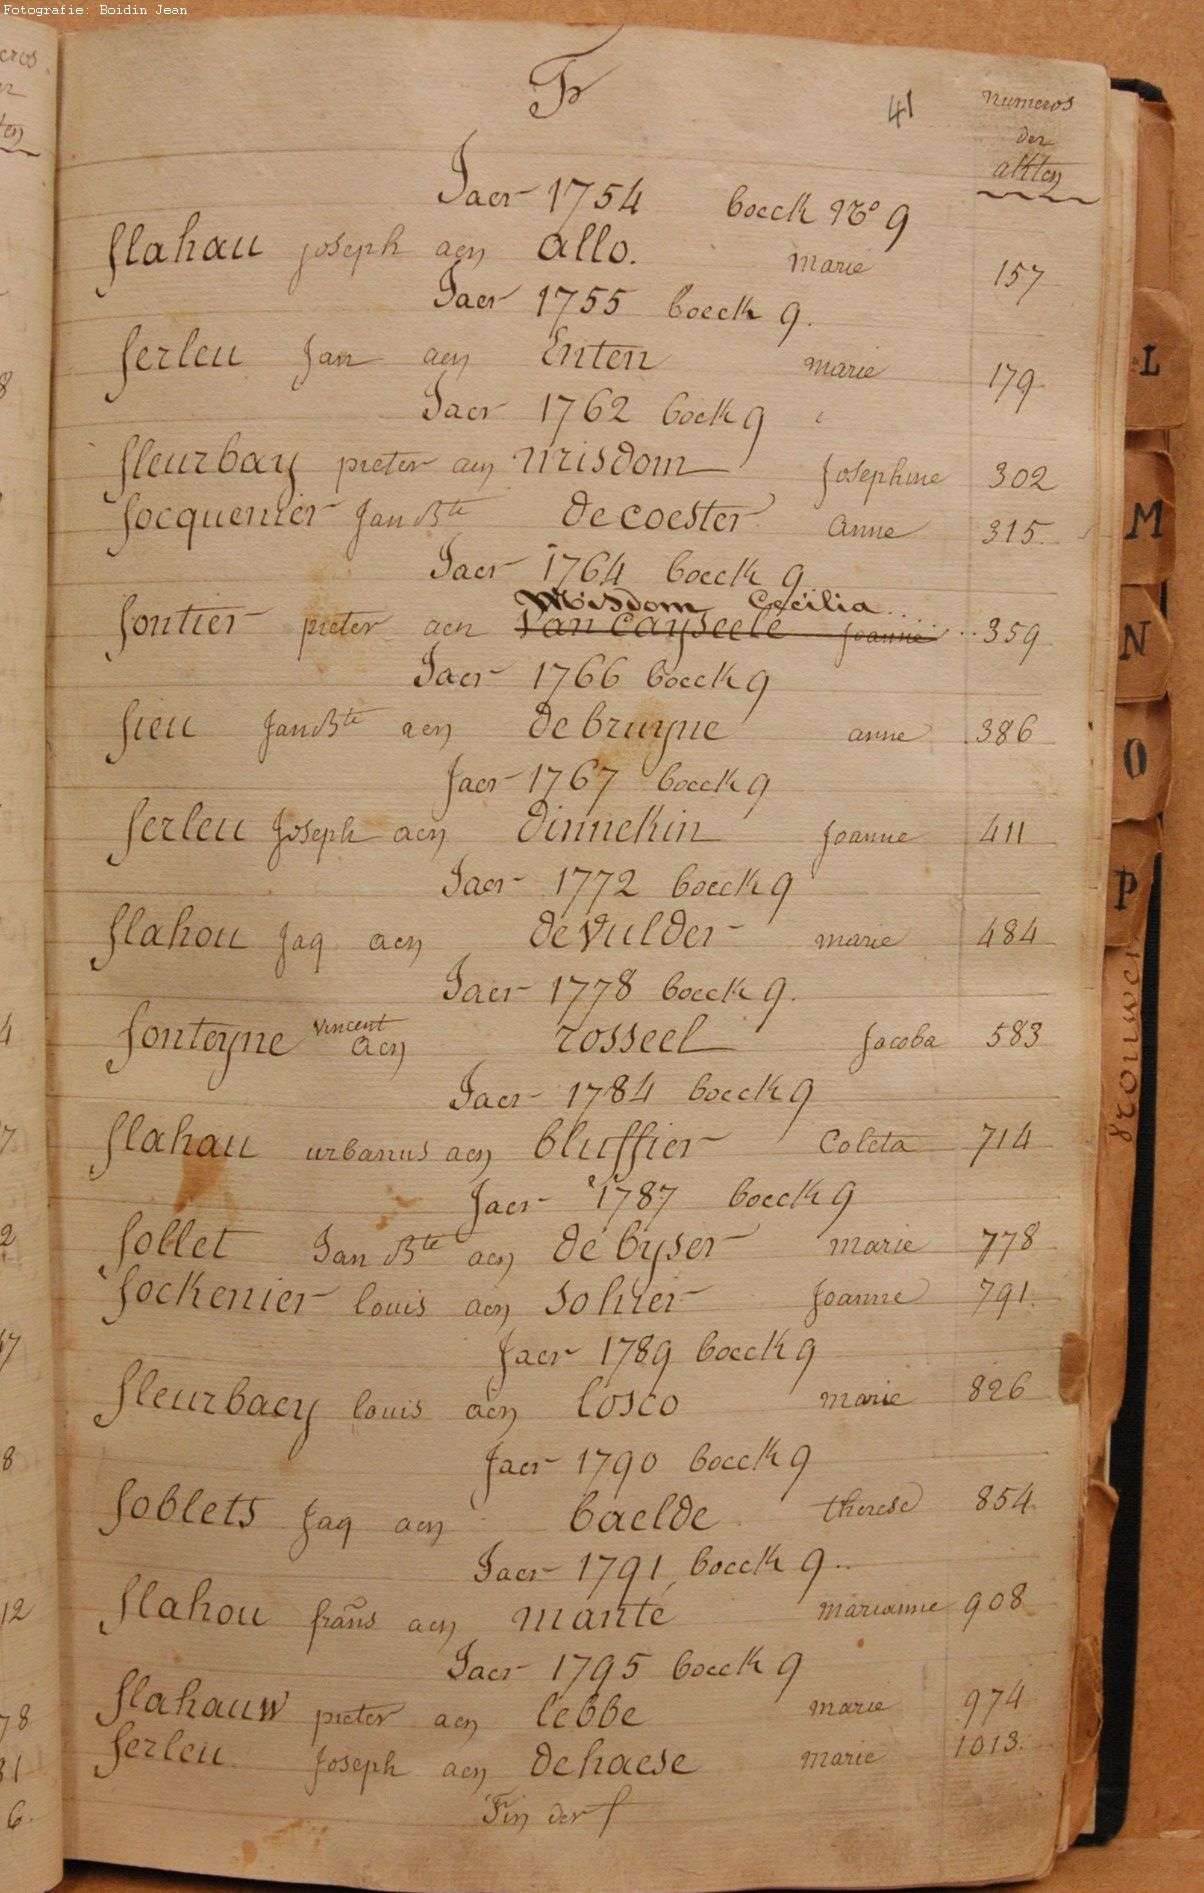 Fotografie: Boidin Jean
F
41
numeros
der
akten
Jaer 1754 boeck No 9
flahau joseph aen allo. marie 157
Jaer 1755 boeck 9.
ferleu Jan aen Enten marie 179
Jaer 1762 boek 9
fleurbay pieter aen wisdom Josephine 302
focquenier Jan Bte decoester anne 315.
Jaer 1764 boeck 9
Misdom Cecilia
fontier pieter aen Van Cayseele Joanne 359
Jaer 1766 boeck 9
fieu Jan Bte aen debruyne anne 386
Jaer 1767 boeck 9
ferleu Joseph aen dinnekin Joanne 411
Jaer 1772 boeck 9
flahou Jaq aen devulder marie 484
Jaer 1778 boeck 9.
Vincent
fonteyne aen rosseel Jacoba 583
Jaer 1784 boeck 9
flahau urbanus aen bluffier Coleta 714
Jaer 1787 boeck 9
follet Jan Bte aen de byser marie 778
fockenier louis aen sohier Joanne 791.
Jaer 1789 boeck 9
fleurbaey louis aen losco marie 826
Jaer 1790 boeck 9
foblets Jaq aen baelde therese 854.
Jaer 1791 boeck 9..
flahou frans aen manté marianne 908
Jaer 1795 boeck 9
flahauw pieter aen lebbe marie 974
ferleu Joseph aen dehaese marie 1013.
Fin der f
L
M
N
O
P